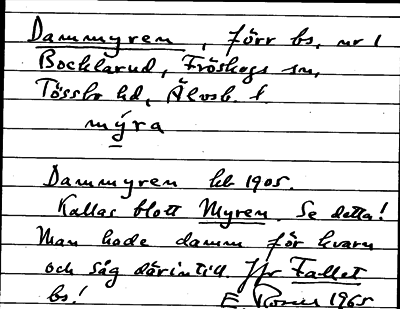 Dammyren, förr bs, nr 1
Bocklarud, Fröskogs sn,
Tössbo hd, Älvsb. l.
mýra
Dammyren hb 1905.
Kallas blott Myren. Se detta!
Man hade damm för kvarn
och såg därintill. Jfr Fallet
bs! E. Rosell 1965